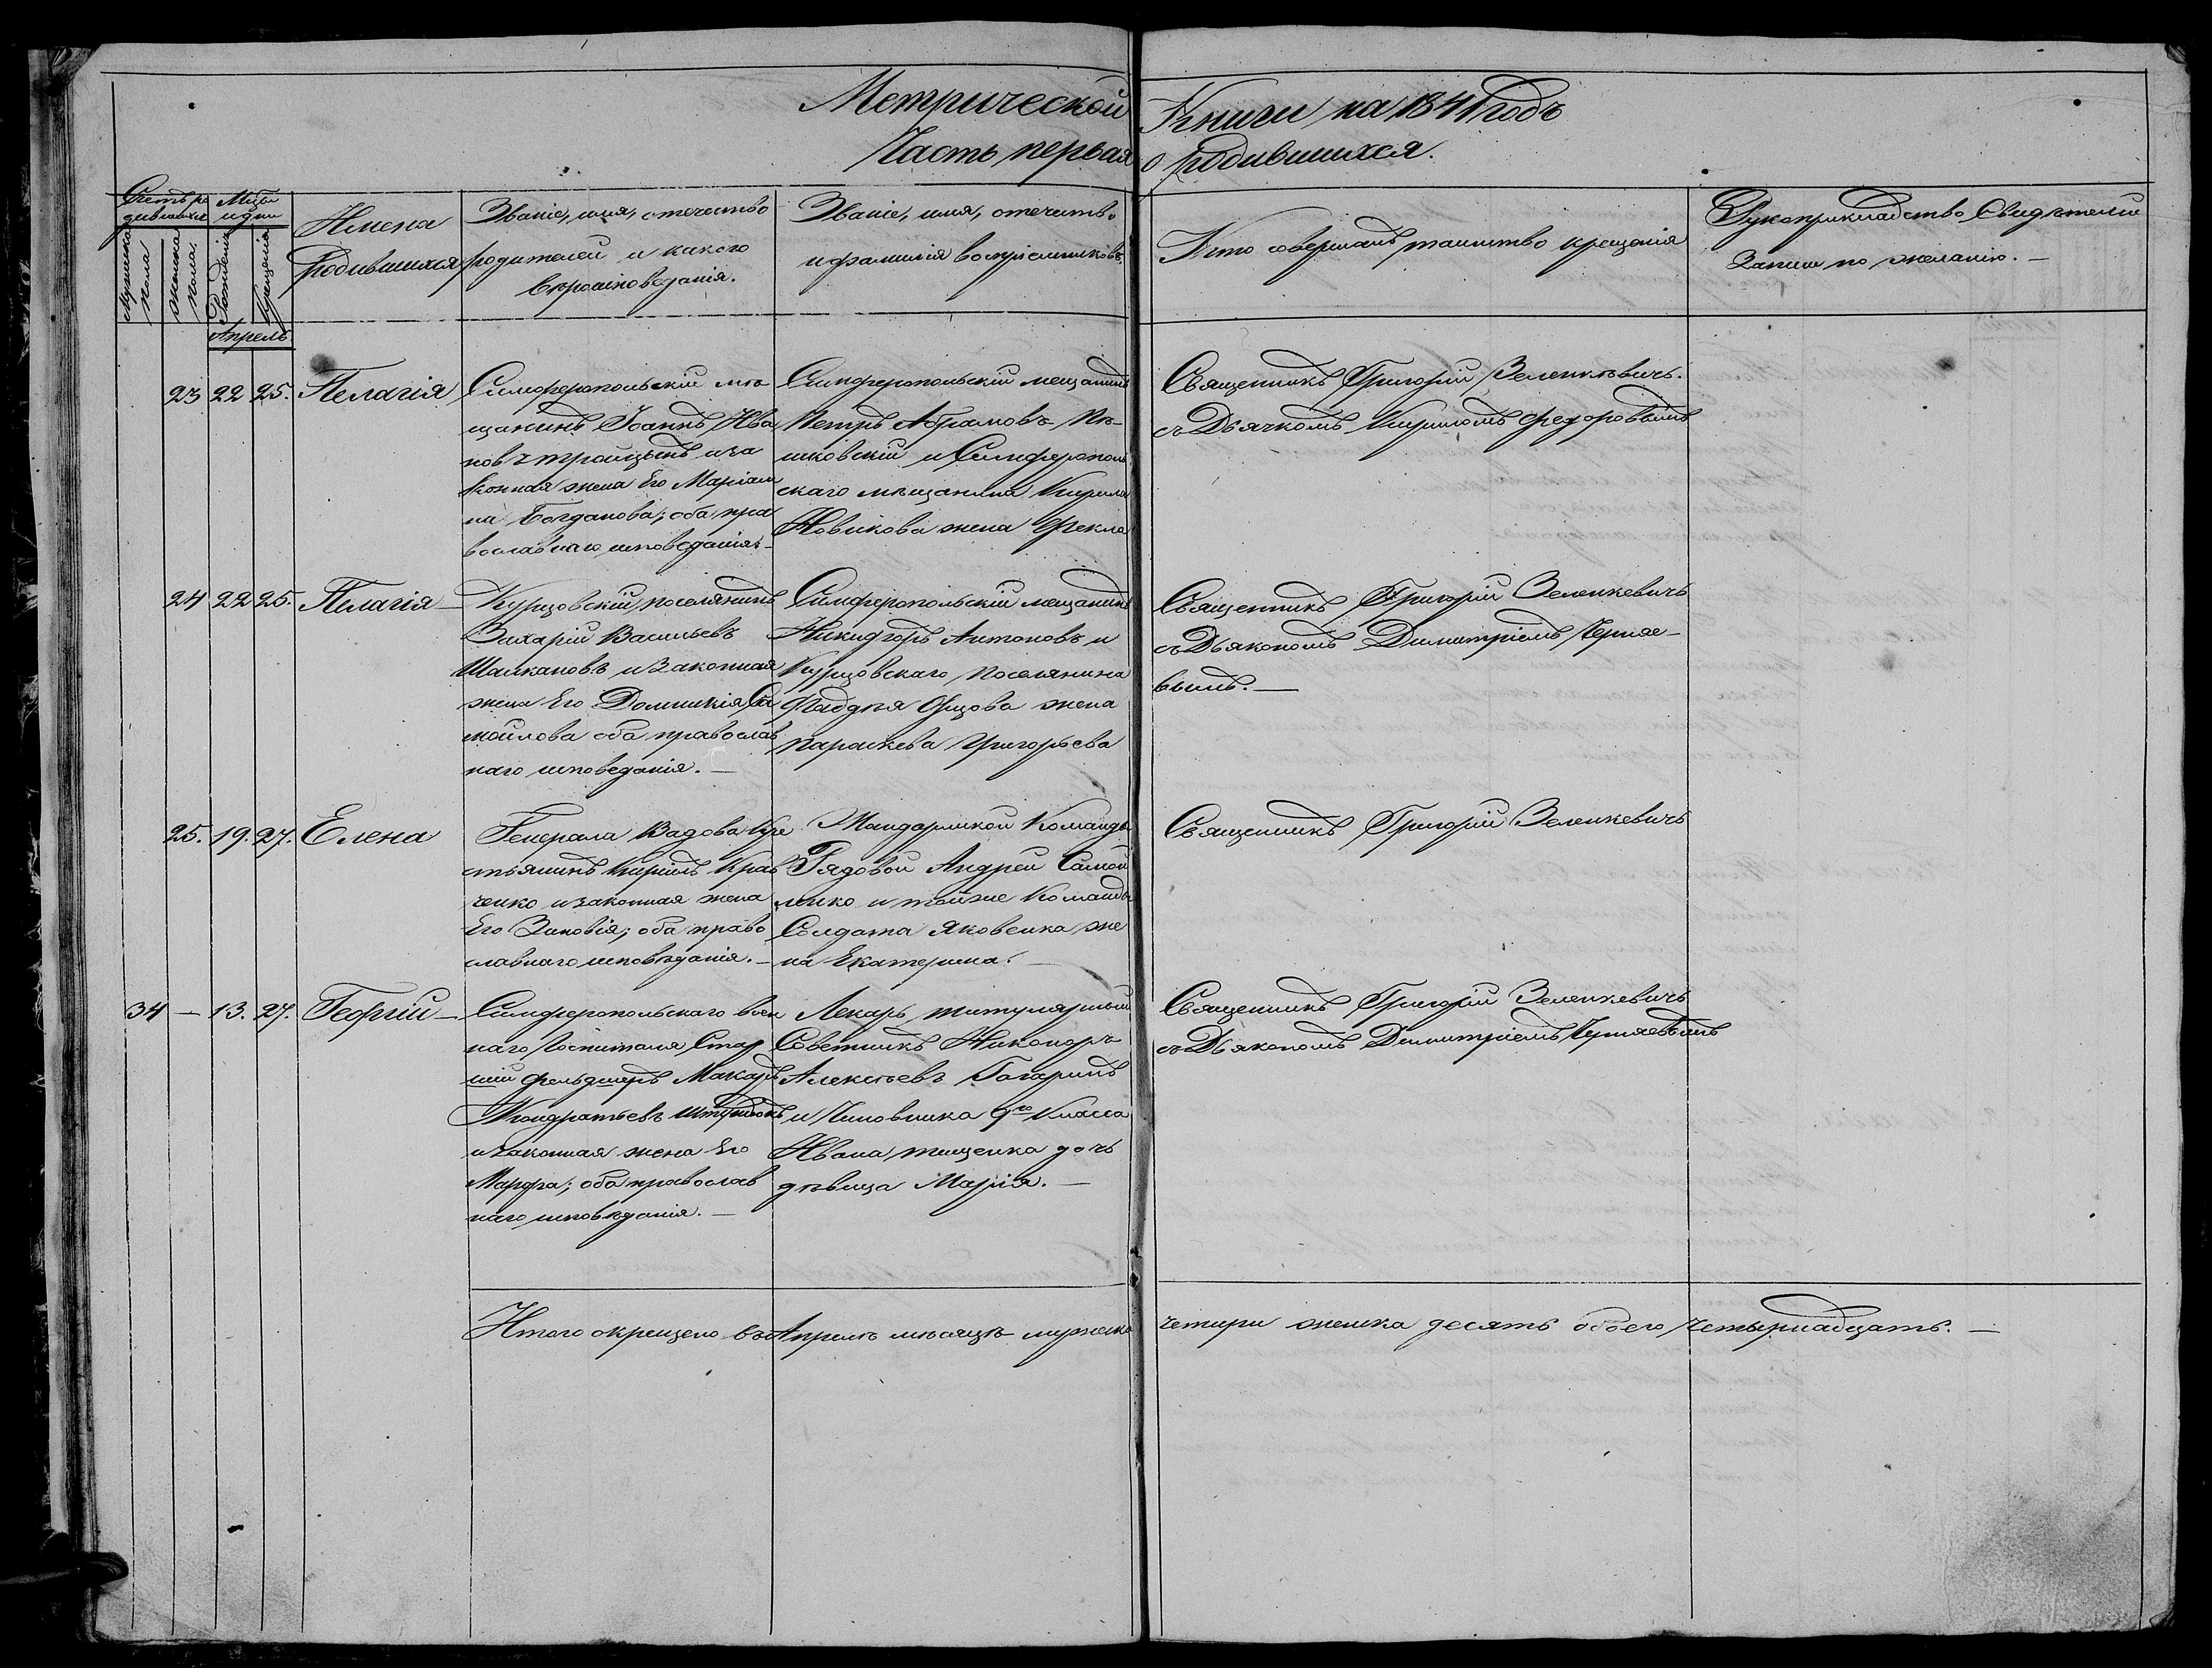 Метрической Книги на 1841 годъ
Часть первая о родившихся.
Счетъ ро
дившихся
Мужеска
пола
Женска
пола
Мѣсяцъ
и дни
Рожденія
Крещенія
Имена
Родившихся
Званіе, имя, отечество
родителей и какого
вѣроисповеданія.
Званіе, имя, отечество
и фамилія воспріемниковъ.
Кто совершалъ таинство крещенія
Рукоприкладство Свидѣтелей
Записи по желанію. —
Апрель
23 22 25. Пелагія
Симферопольскій мѣ
щанинъ Іоаннъ Ива
новъ и за
конная жена Его Маріам
на Богданова; оба пра
вославнаго исповеданія. —
Симферопольскій мещанинъ
Петръ Абрамовъ
и Симферополь
скаго мѣщанина Кирила
Новикова жена Фекла
Священникъ Григорій Зеленкѣвичъ.
съ Дьячкомъ Кириломъ Федоровымъ
24 22 25. Пелагія —
Курцовскій поселянинъ
Захарій Васильевъ
и Законная
жена Его Домникія Са
мойлова оба православ
наго исповеданія. —
Симферопольскій мещанинъ
Никифоръ Антоновъ и
Курцовскаго поселянина
Фаддѣя жена
Параскева Григорьева
Священникъ Григорій Зеленкевичъ
съ Дьякономъ Димитріемъ Черняе-
вымъ. —
25. 19. 27. Елена
Генерала Кре
стьянинъ Кирилъ Крав
ченко и законная жена
Его Зиновія; оба право
славнаго исповѣданія. —
Команды
Рядовой Андрей Самой
ленко и тойже Команды
Солдата Яковенка же
на Екатерина. —
Священникъ Григорій Зеленкевичъ
34 — 13. 27. Георгій —
Симферопольскаго воен
наго Госпиталя Стар
шій фельдшеръ Макаръ
Кондратьевъ
и законная жена Его
Марфа; оба православ
наго исповѣданія. —
Лекарь, титулярный
Советникъ Никоноръ
Алексѣевъ Гагаринъ
и Чиновника 9го Класса
Ивана Тищенка дочь
дѣвица Марія. —
Священникъ Григорій Зеленкевичъ
съ Дьякономъ Димитріемъ Черняевымъ
Итого окрещено въ Апрелѣ мѣсяцѣ мужеска четыри женска десять обоего Четырнадцать. —